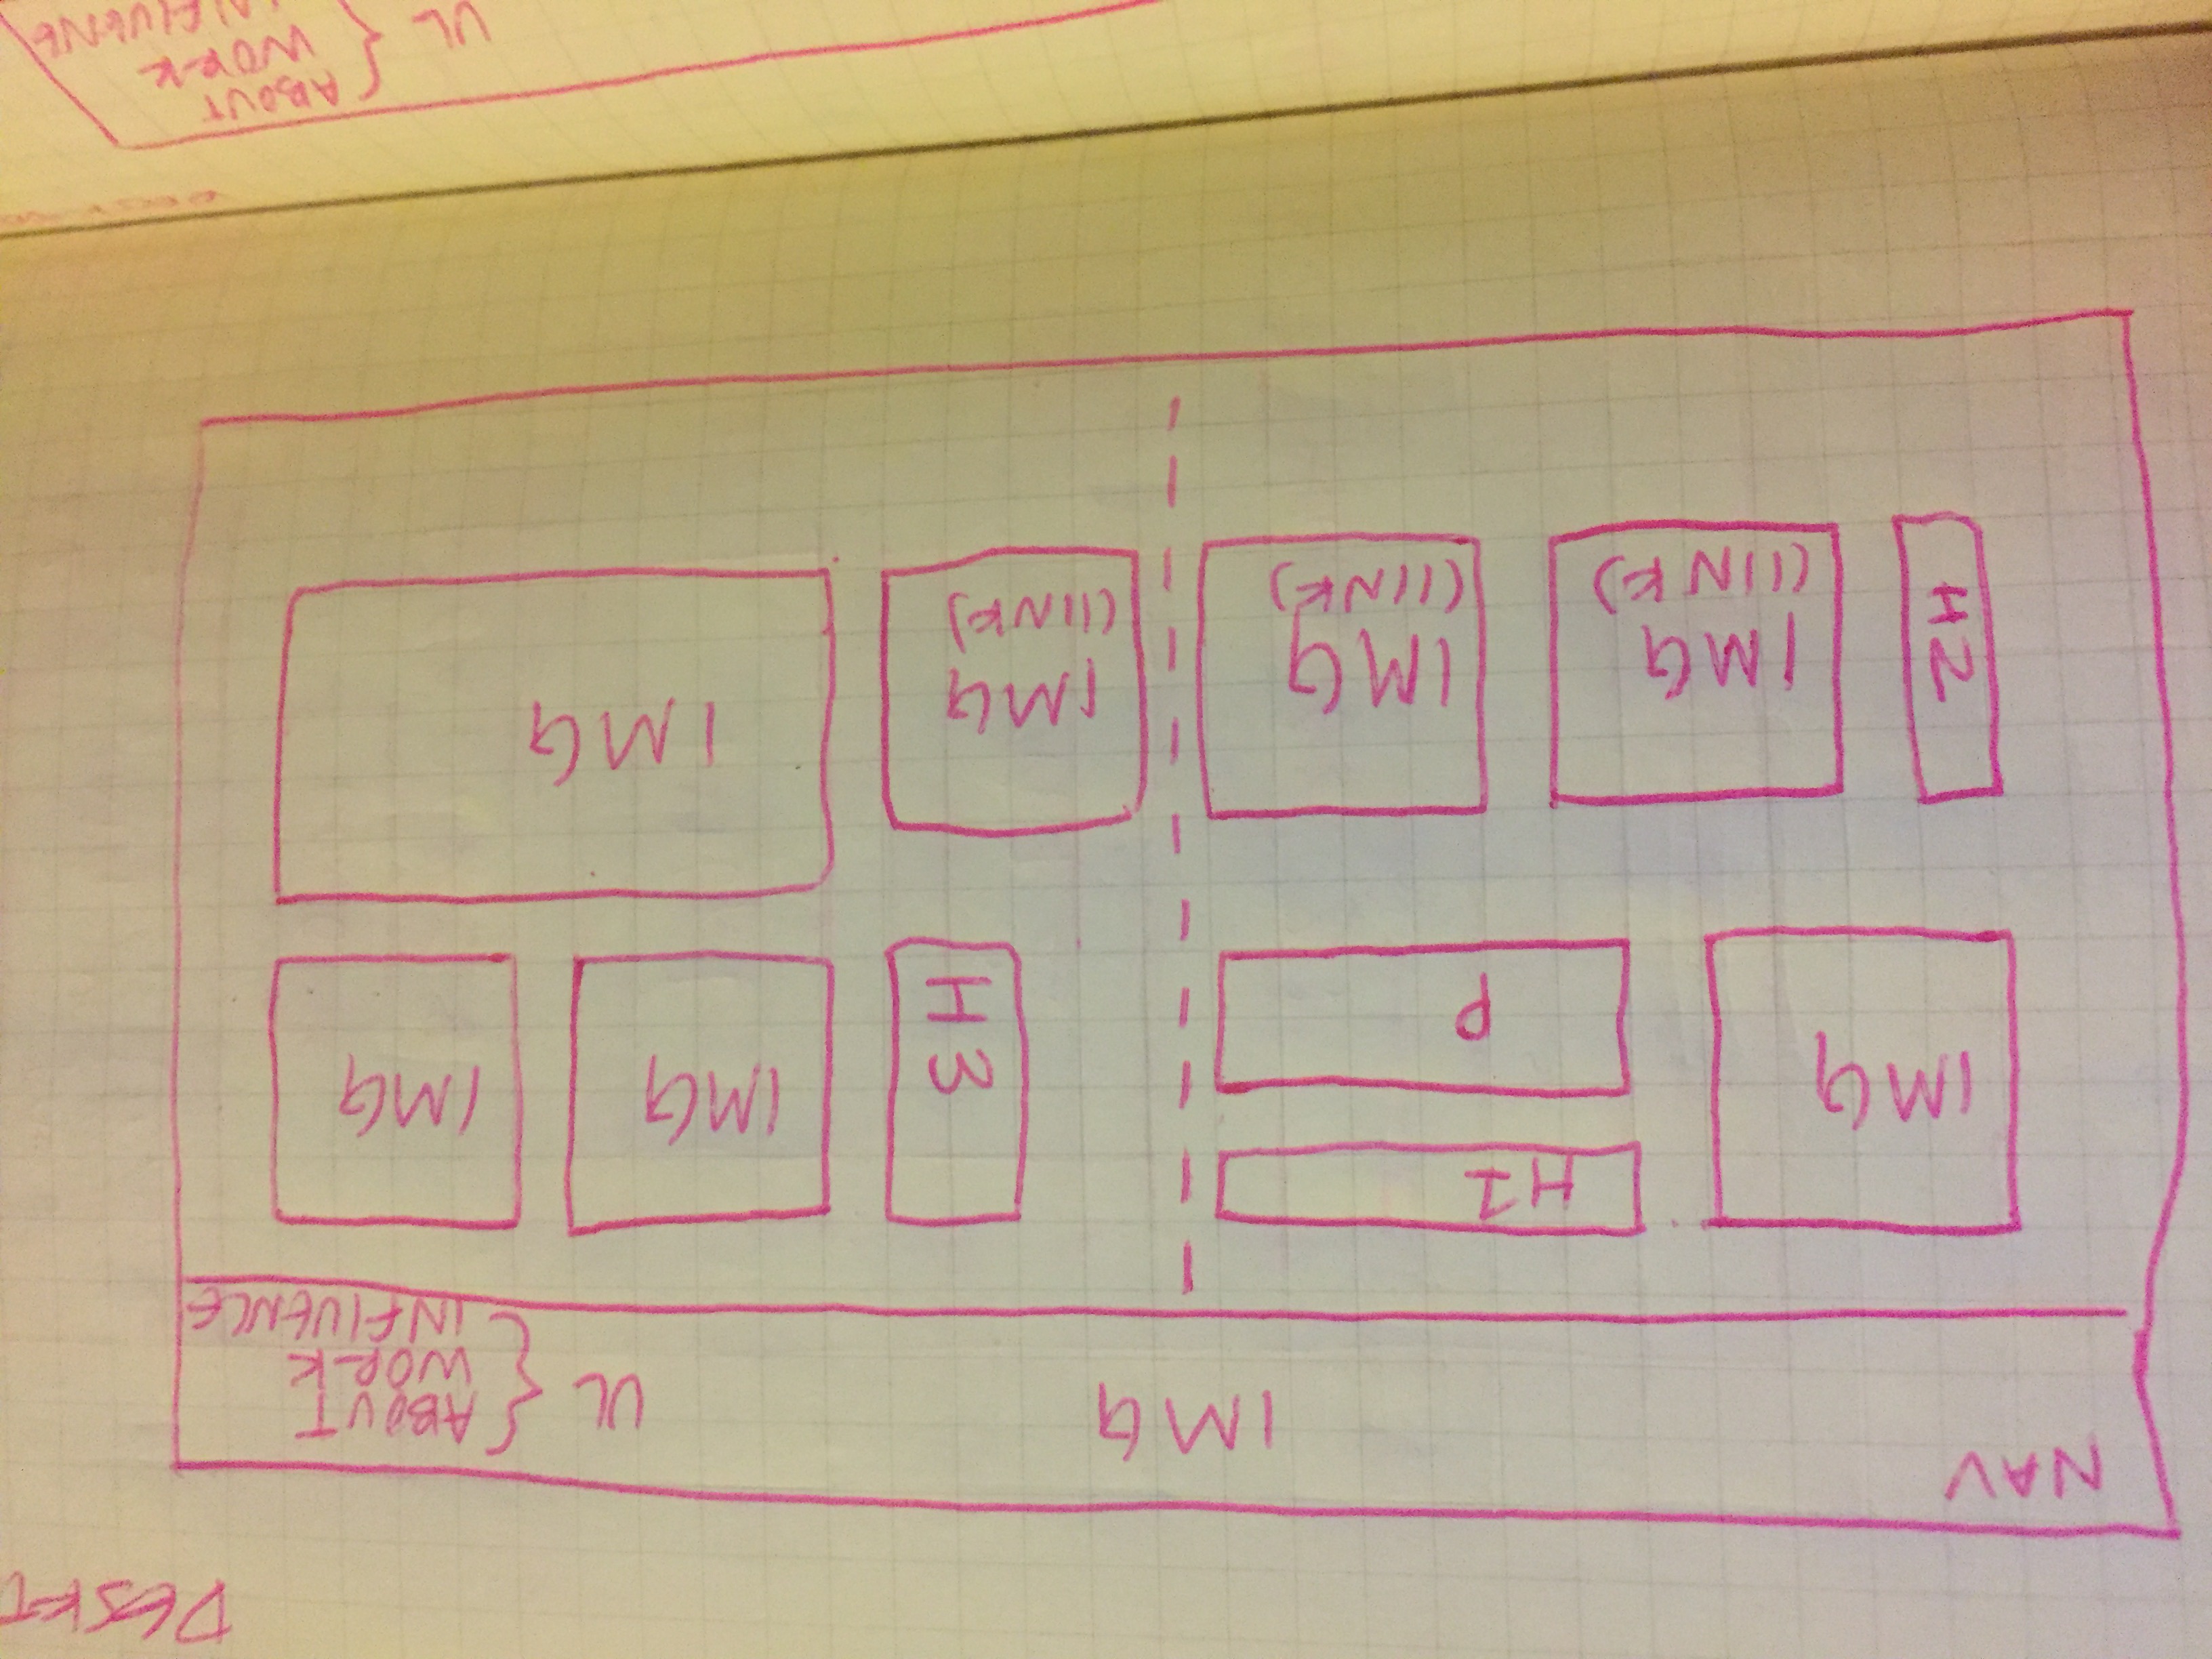 DESKT
NAV
IMG
UL { ABOUT
WORK
INFlUENCE
IMG
H1
P
H3
IMG
IMG
H2
IMG
(lINK)
IMG
(lINK)
IMG
(lINK)
IMG
UL { ABOUT
WORK
INFlUENCE